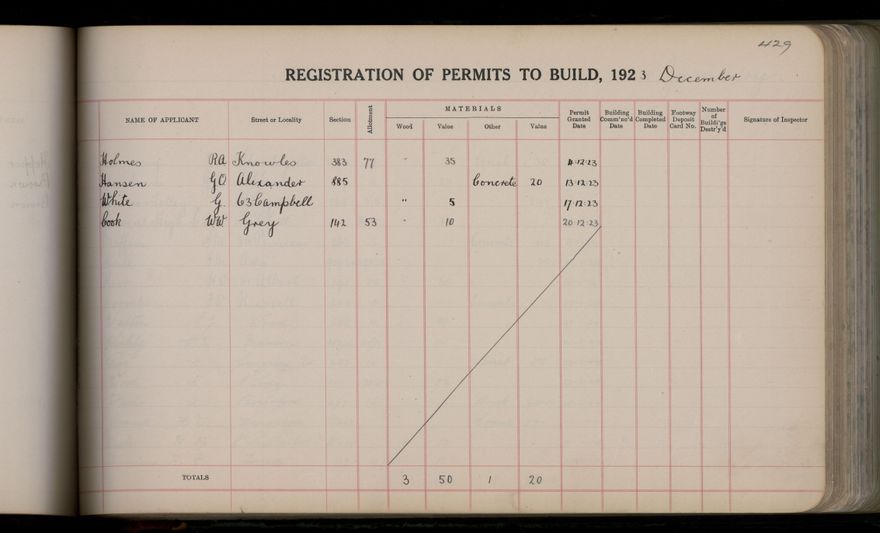 429
REGISTRATION OF PERMITS TO BUILD, 1923 December
NAME OF APPLICANT Street or Locality Section Allotment MATERIALS Wood Value Other Value Permit Granted Date Building Comm'nc'd Date Building Completed Date Footway Deposit Card No. Number of Buildi'gs Destr'y'd Signature of Inspector
Holmes RA Knowles 383 77 " 35 11·12·23
Hansen GO Alexander 885 Concrete 20 13·12·23
White G. 63 Campbell " 5 17·12·23
Cook WW Grey 142 53 " 10 20·12·23
TOTALS 3 50 1 20